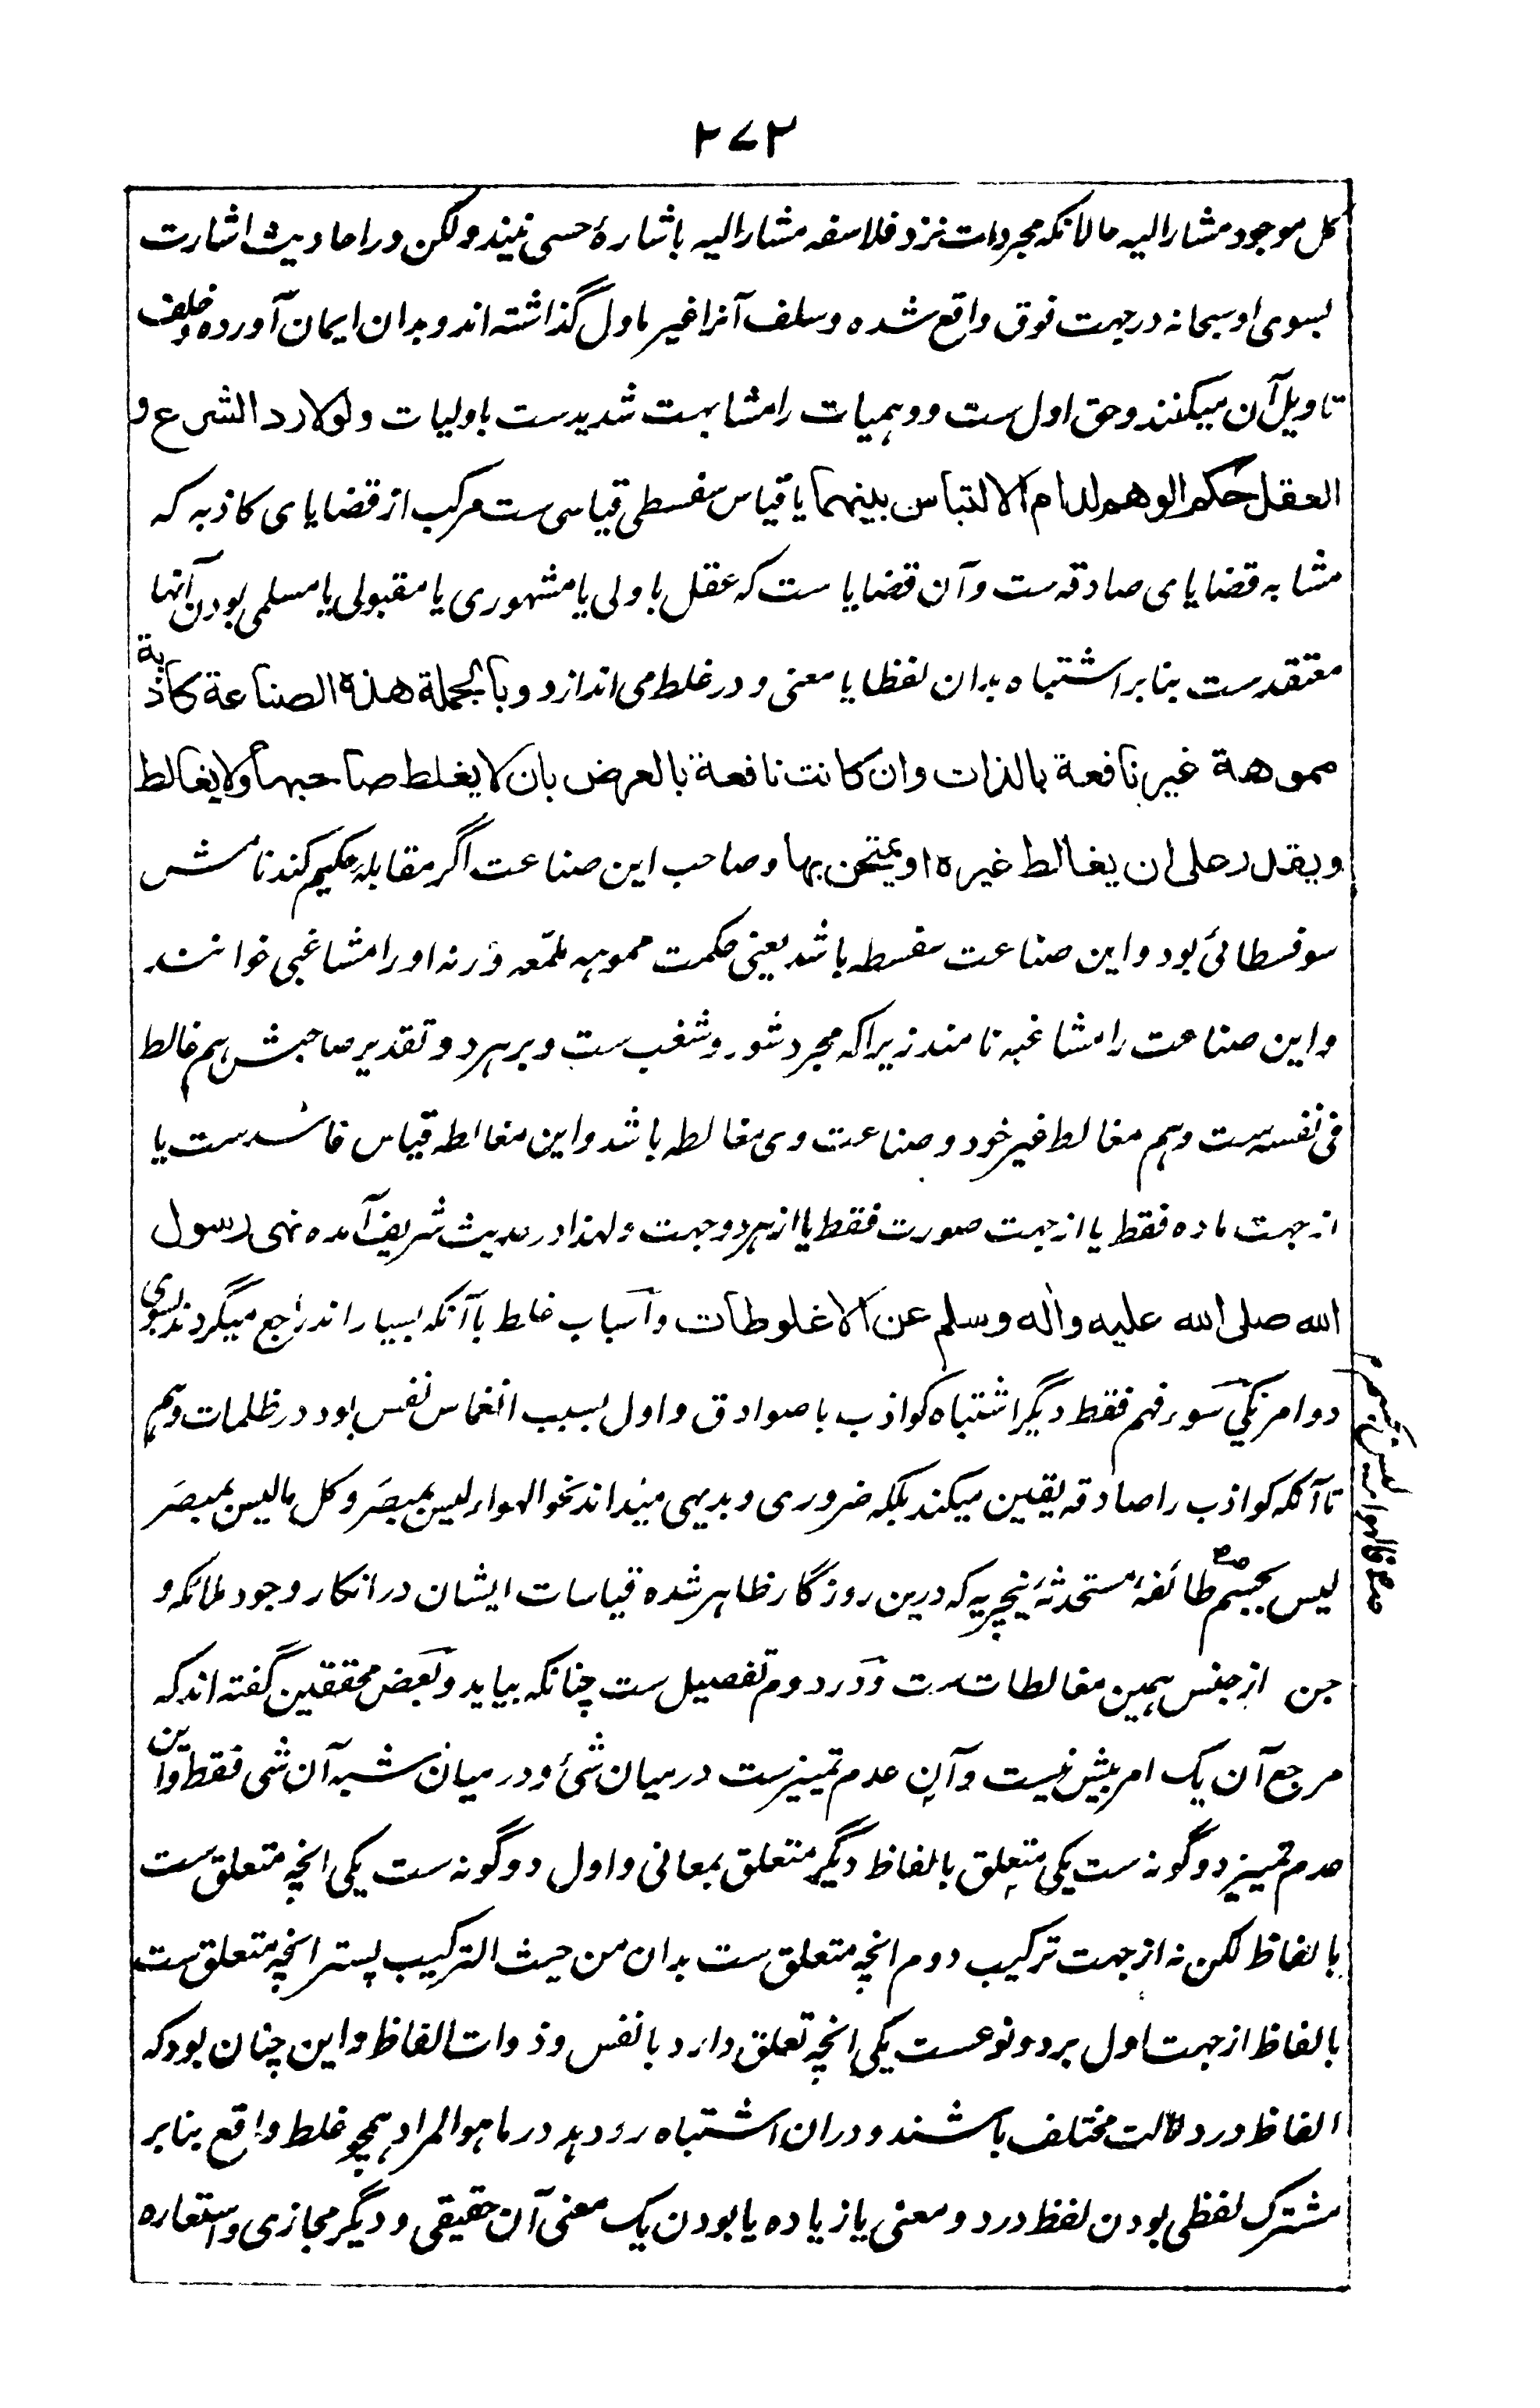 ۲۷۲
کل موجود مشارالیه حالانکه مجردات نزد فلاسفه مشارالیه باشارهٔ حسی نیند ولکن در احادیث اشارت
بسوی او سبحانه در جهت فوق واقع شده و سلف آنرا غیر ماول گذاشته اند و بدان ایمان آورده و خلف
تاویل آن میکنند و حق اول ست و وهمیات را مشابهت شدید ست باولیات ولولا رد الشرع و
العقل حکم الوهم لدام الالتباس بینهما یا قیاس سفسطی قیاسی ست مرکب از قضایای کاذبه که
مشابه قضایای صادقه ست و آن قضایا ست که عقل باولی یا مشهوری یا مقبولی یا مسلمی بودن آنها
معتقد ست بنابر اشتباه بدان لفظا یا معنی و در غلط می اندازد و بالجملة هذه الصناعة کاذبة
مموهة غیر نافعة بالذات وان کانت نافعة بالعرض بان لا یغلط صاحبها ولا یغالط
ویقدر علی ان یغالط غیره او یمتحن بها و صاحب این صناعت اگر مقابله حکیم کند نامش
سوفسطائی بود و این صناعت سفسطه باشد یعنی حکمت مموهه ملمّعه ورنه او را مشاغبی خوانند
و این صناعت را مشاغبه نامند زیراکه مجرد شور و شغب ست و بر هر دو تقدیر صاحبش هم غالط
فی نفسه ست و هم مغالط غیر خود و صناعت وی مغالطه باشد و این مغالطه قیاس فاسد ست یا
از جهت ماده فقط یا از جهت صورت فقط یا از هر دو جهت و لهذا در حدیث شریف آمده نهی رسول
الله صلی الله علیه واله وسلم عن الاغلوطات و اسباب غلط با آنکه بسیار اند راجع میگردند بسوی
دو امر یکی سوء فهم فقط دیگر اشتباه کواذب با صوادق و اول بسبب انغماس نفس بود در ظلمات وهم
تا آنکه کواذب را صادقه یقین میکند بلکه ضروری و بدیهی میداند نحو الهواء لیس بمبصَر و کل ما لیس بمبصَر
لیس بجسم طائفهٔ مستحدثهٔ نیچریه که درین روزگار ظاهر شده قیاسات ایشان در انکار وجود ملائکه و
جن از جنس همین مغالطات ست و در دوم تفصیل ست چنانکه بیاید و بعض محققین گفته اند که
مرجع آن یک امر بیش نیست و آن عدم تمییز ست درمیان شئ و درمیان شبه آن شی فقط و این
عدم تمییز دو گونه ست یکی متعلق بالفاظ دیگر متعلق بمعانی و اول دو گونه ست یکی انچه متعلق ست
بالفاظ لکن نه از جهت ترکیب دوم انچه متعلق ست بدان من حیث الترکیب پستر انچه متعلق ست
بالفاظ از جهت اول بر دو نوعست یکی انچه تعلق دارد بانفس و ذوات الفاظ و این چنان بود که
الفاظ در دلالت مختلف باشند و دران اشتباه رو دهد در ما هو المراد همچو غلط واقع بنابر
مشترک لفظی بودن لفظ در دو معنی یا زیاده یا بودن یک معنی آن حقیقی و دیگر مجازی و استعاره
فالهواء لیس بجسم